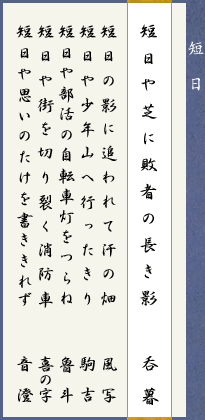 短日
短日や芝に敗者の長き影　呑暮
短日の影に追われて汗の畑　風写
短日や少年山へ行ったきり　駒吉
短日や部活の自転車灯をつらね　魯斗
短日や街を切り裂く消防車　喜の字
短日や思いのたけを書ききれず　音澄